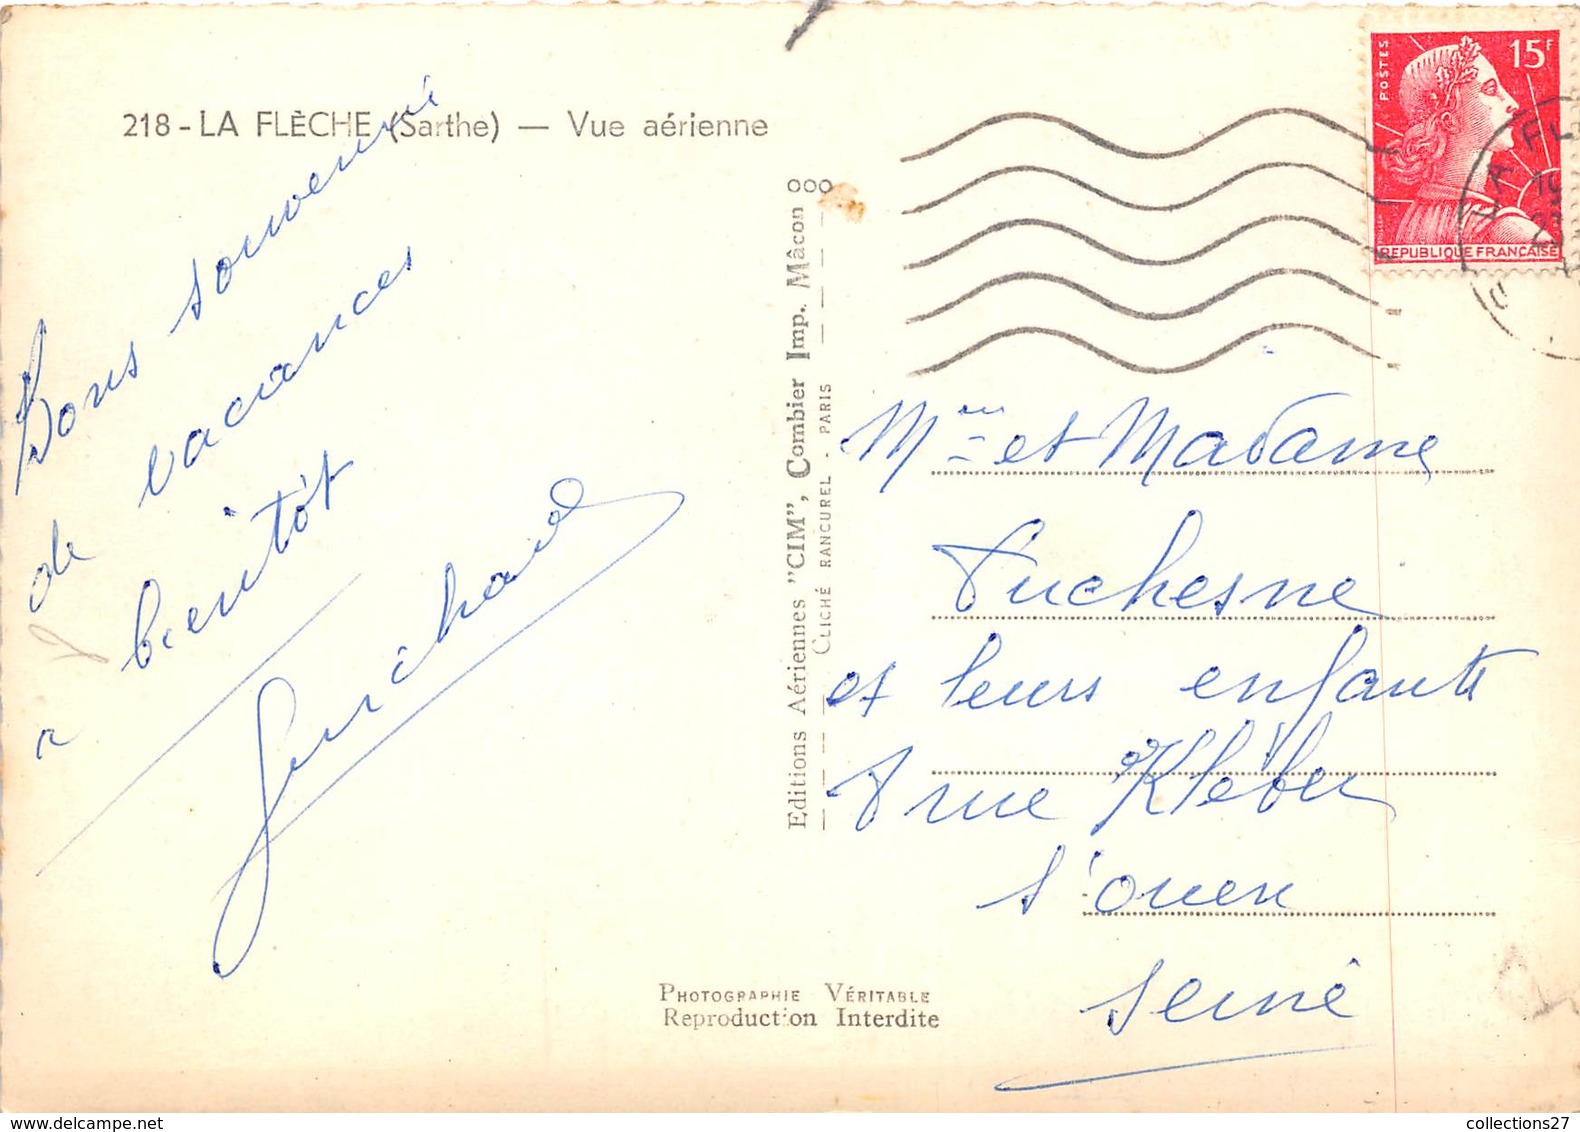 218 - LA FLÈCHE (Sarthe) — Vue aérienne
Bons souvenir
de vacances
a bientôt
POSTES
15F
REPUBLIQUE FRANÇAISE
LA FL
Editions Aériennes "CIM", Combier Imp. Mâcon
CLICHÉ RANCUREL - PARIS
Mr et Madame
Duchesne
et leurs enfants
rue Kléber
St ouen
Seine
PHOTOGRAPHIE VÉRITABLE
Reproduction Interdite
collections27